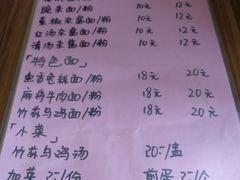 脆来面/粉 10元 12元
素椒杂酱面/粉 10元 12元
红汤杂酱面/粉 10元 12元
清汤杂酱面/粉 10元 12元
「特色面」
鱼香兔丝面/粉 18元 20元
麻鸡牛肉面/粉 18元 20元
竹荪乌鸡面/粉 18元 20元
「小菜」
竹荪乌鸡汤 20元/盅
加菜 2元/份 煎蛋 2元/个